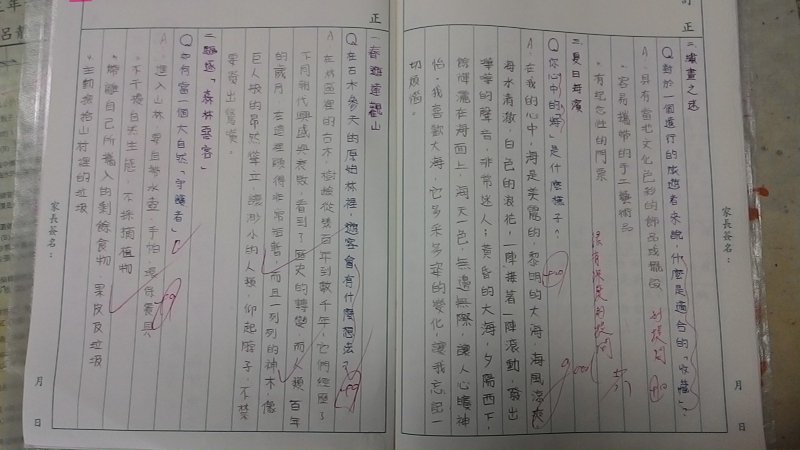 訂正
二、購畫之迷
Q對於一個遠行的旅遊者來說,什麼是適合的「收購」?
A:具有當地文化色彩的飾品或擺設
·容易攜帶的手工藝術品
·有紀念性的門票
三、夏日海濱
Q你心中的「海」是什麼樣子?
A:在我的心中,海是美麗的,黎明的大海,海風涼爽,
海水清澈,白色的浪花,一陣接著一陣滾動,發出
嘩嘩的聲音,非常迷人;黃昏的大海,夕陽西下,
餘暉灑在海面上,海天一色,無邊無際,讓人心曠神
怡。我喜歡大海,它多采多姿的變化,讓我忘記一
切煩惱。
家長簽名:
月 日
正
一、春遊達觀山
Q在古木參天的原始林裡,遊客會有什麼想法?
A:在林區裡的古木,樹齡從幾百年到數千年,它們經歷了
不同朝代興盛與衰敗,看到了歷史的轉變,而人類百年
的歲月,在這裡顯得非常短暫,而且一列列的神木,像
巨人般的昂然聳立,讓渺小的人類,仰起脖子,不禁
要發出驚嘆。
二、驅逐「森林惡客」
Q如何當一個大自然「守護者」?
A:進入山林,要自帶水壺、手帕、環保餐具
·不干擾自然生態,不採摘植物
·帶離自己所攜入的剩餘食物、果皮及垃圾
·主動撿拾山林裡的垃圾
家長簽名:
月 日